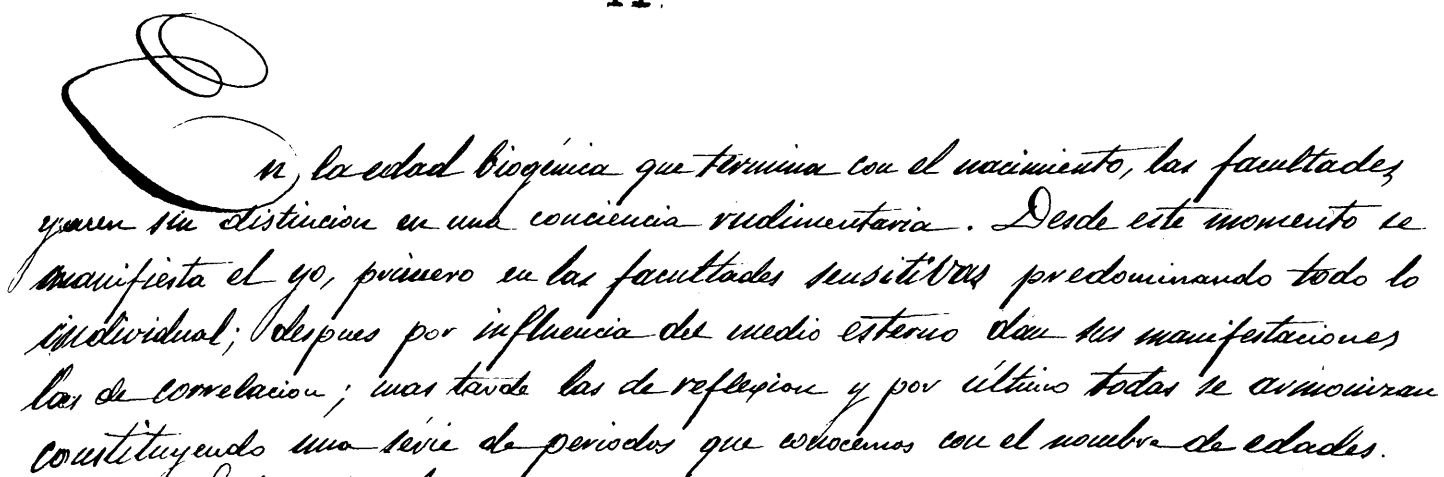 En la edad biogénica que termina con el nacimiento, las facultades
yacen sin distincion en una conciencia rudimentaria. Desde este momento se
manifiesta el yo, primero en las facultades sensitivas predominando todo lo
individual; despues por influencia del medio esterno dan sus manifestaciones
las de correlacion; mas tarde las de reflexion y por último todas se armonizan
constituyendo una série de periodos que conocemos con el nombre de edades.